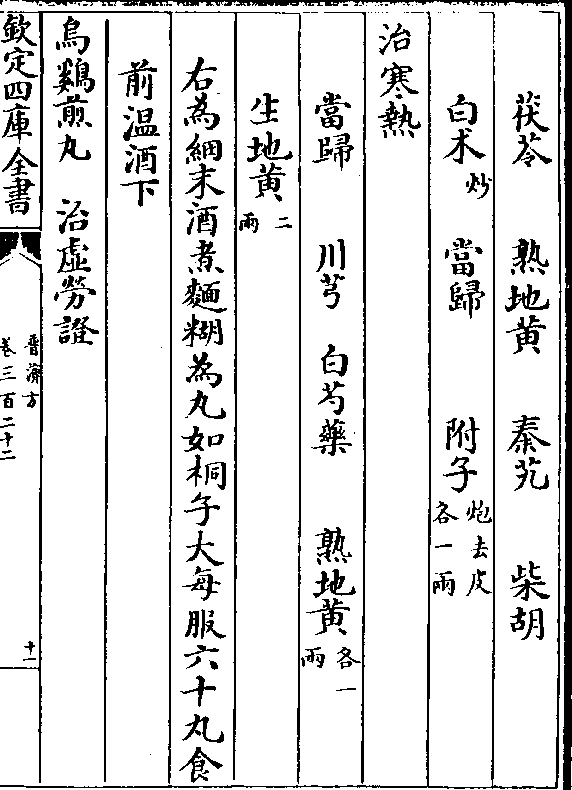 茯苓　熟地黄　秦艽　柴胡
白术炒　當歸　附子炮去皮各一兩
治寒熱
當歸　川芎　白芍藥　熟地黄各一兩
生地黄二兩
右為細末酒煮麵糊為丸如桐子大每服六十丸食
前温酒下
烏鷄煎丸　治虛勞證
欽定四庫全書
普濟方
卷三百二十二
十一